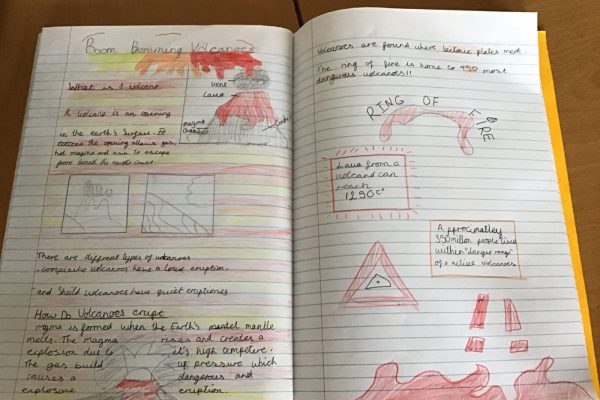 Boom Bomming Volcanoes
What is a Volcano
Vent
Lava
magma
chamber
A volcano is an opening
in the earth's surfase.
the opening allows gas,
hot magma and ash to escape
from
There are different types of volcanoes
- composite volcanoes have a loud eruption.
- and Sheild Volcanoes have quiet eruptions
How Do Volcanoes erupt
magma is formed when the Earth's mantel mantle
melts. The magma rises and creates a
explosion due to it's high
The gas build up pressure which
causes a dangerous and
explosive eruption.
Volcanoes are found where tectonic plates meet.
The ring of fire is home to 450 most
dangerous volcanoes!!
RING OF FIRE
Lava from a
volcano can
reach
1250 c°
Aproximatley
350 million people live
within "danger range"
of a active volcanoes